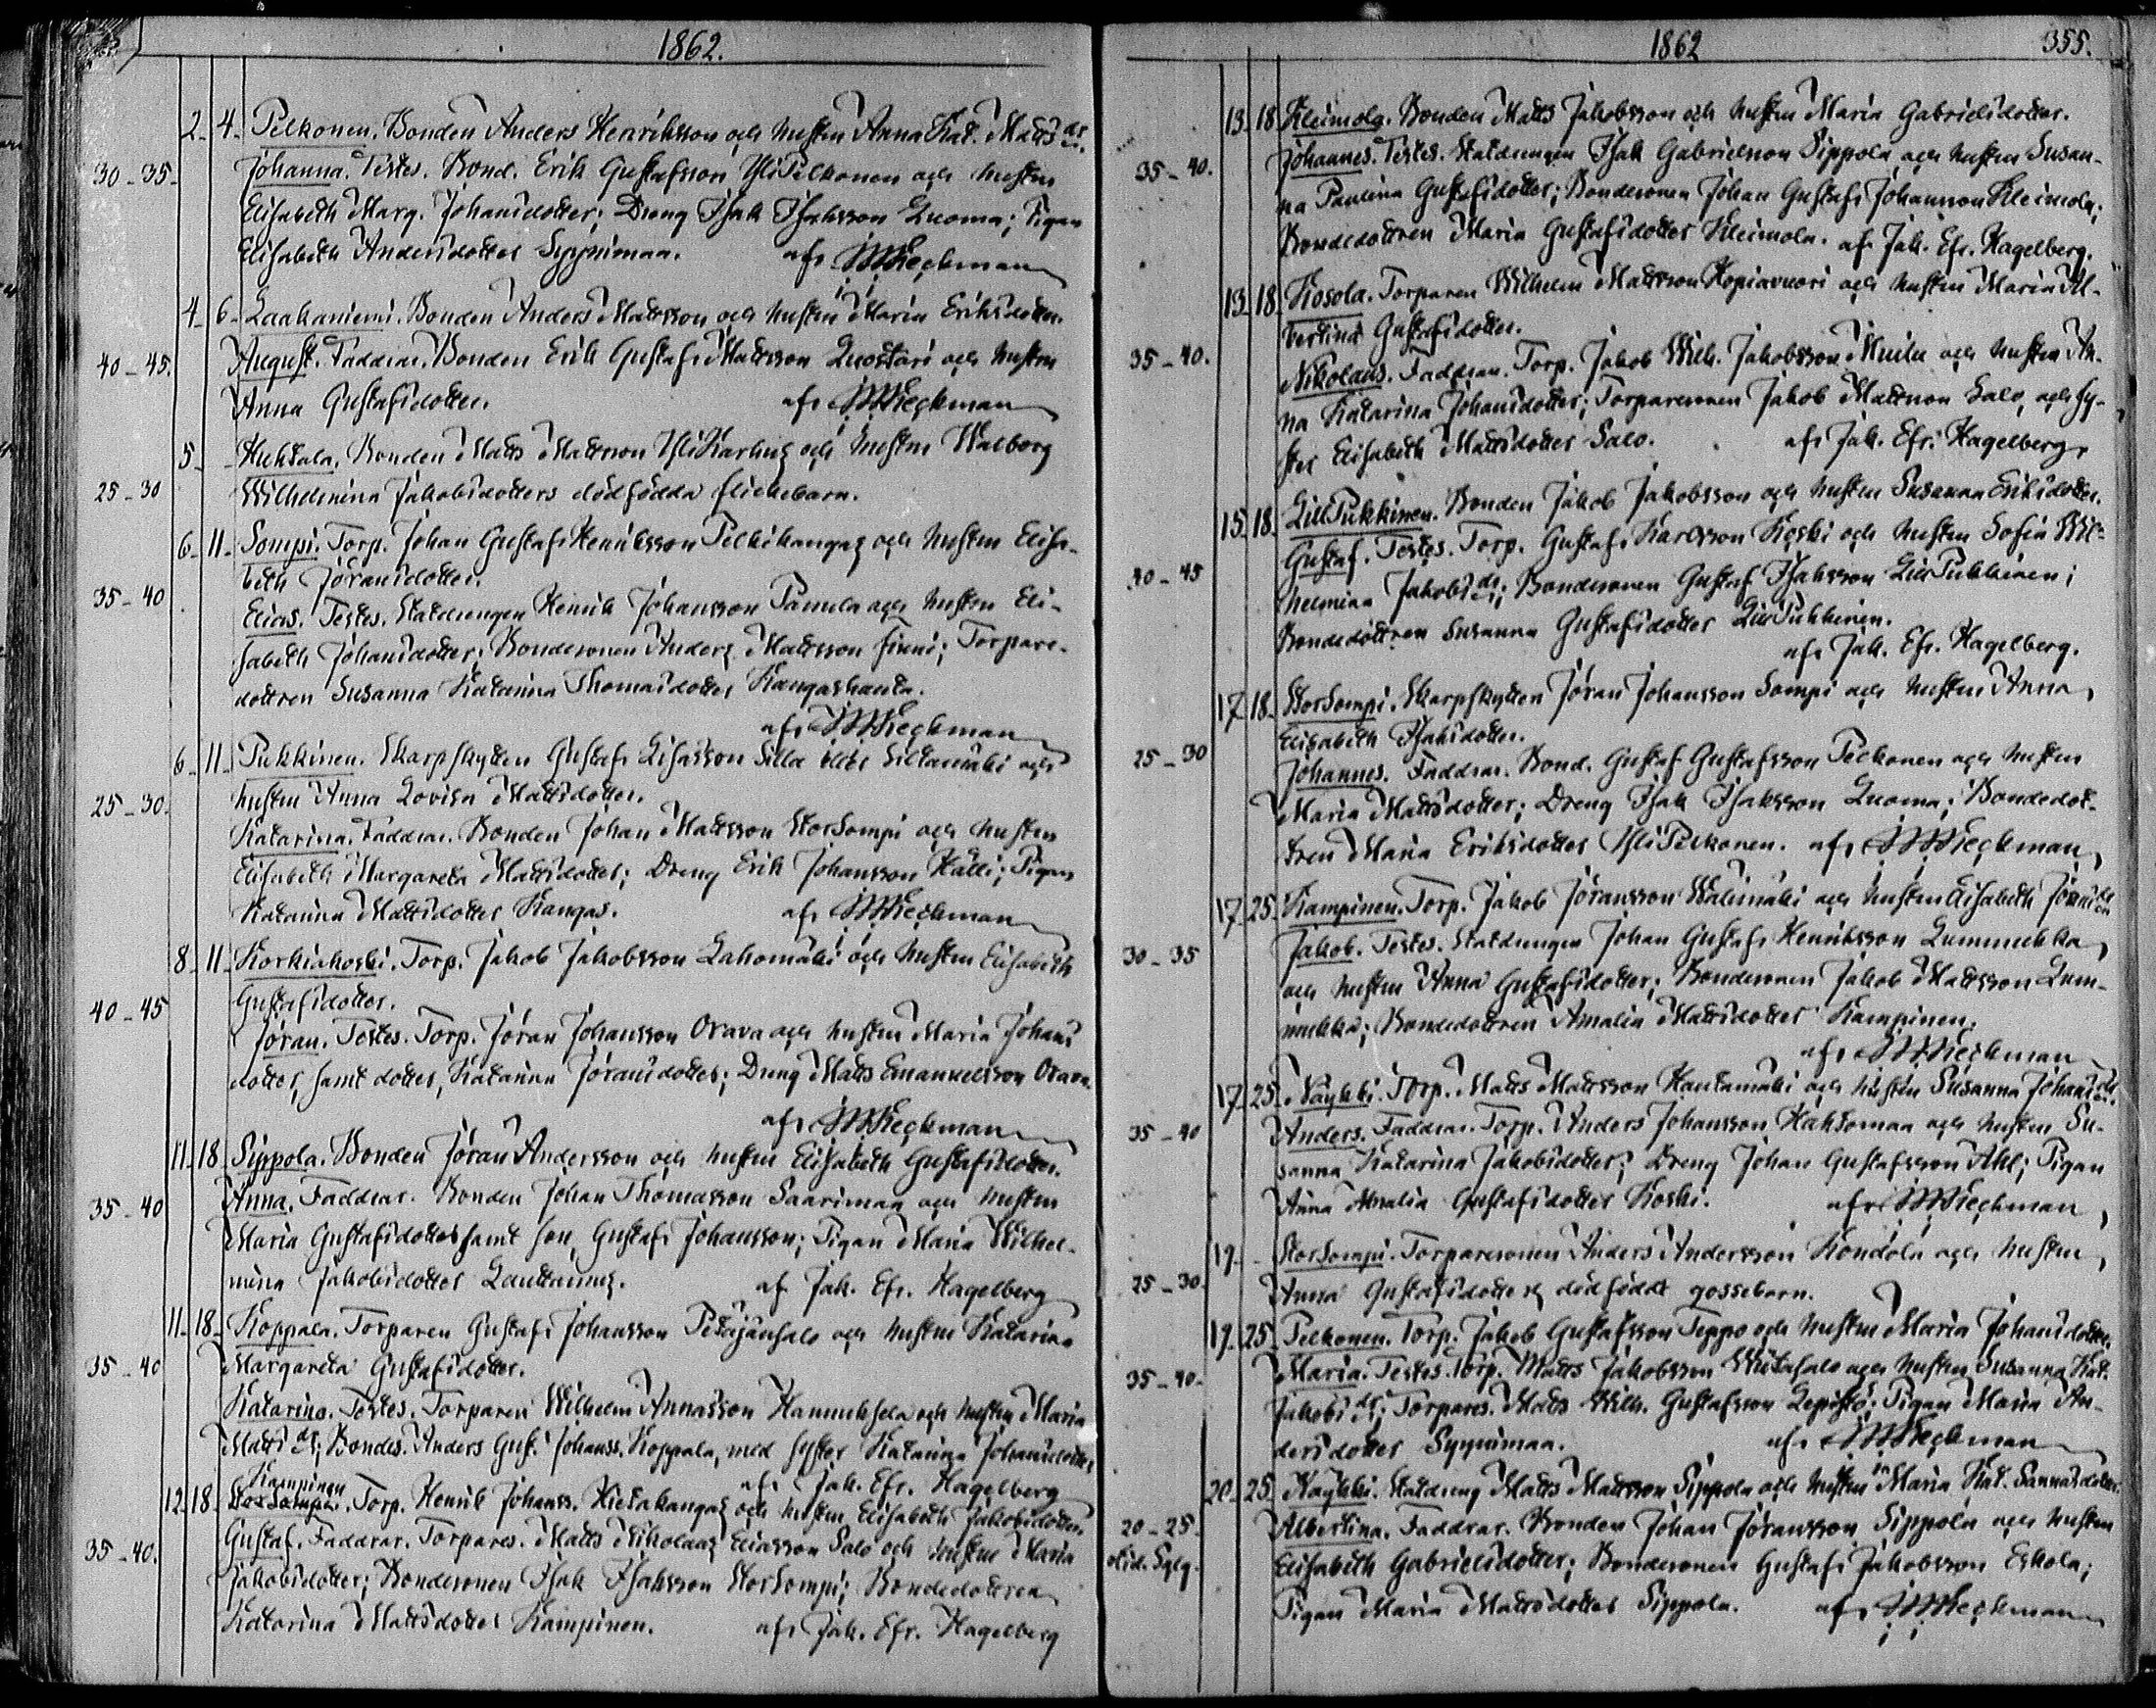 1862.
2 4 Pelkonen. Bonden Anders Henriksson och hustru Anna Kat. Matts dr.
30-35 Johanna. Testes. Bond. Erik Gustafsson YliPelkonen och hustru
Elisabeth Marg. Johansdotter; Dreng Isak Isaksson Luoma; Pigan
Elisabeth Andersdotter Syynimaa. af
4 6 Laakaniemi. Bonden Anders Mattsson och hustru Maria Eriksdotter.
40-45. August. Faddrar. Bonden Erik Gustaf Mattsson Luostari och hustru
Anna Gustafsdotter. af
5 Huhtala. Bonden Matts Mattsson och hustru Walborg
25-30 Wilhelmina Jakobsdotters dödfödda flickebarn.
6 11 Sompi. Torp. Johan Gustaf Henriksson Pelkikangas och hustru Elisa-
beth Jöransdotter.
35-40 Elias. Testes. Statdrengen Henrik Johansson Panula och hustru Eli-
sabeth Johansdotter; Bondesonen Anders Mattsson Finni; Torpare-
dottren Susanna Katarina Thomasdotter Kangashauta.
af
6 11 Pukkinen. Skarpskytten Gustaf Silla eller Siltamäki och
hustru Anna Lovisa Mattsdotter.
25-30. Katarina. Faddrar. Bonden Johan Mattsson StorSompi och hustru
Elisabeth Margareta Mattsdotter; Dreng Erik Johansson Källi; Pigan
Katarina Mattsdotter Kangas. af
8 11 Korkiakoski. Torp. Jakob Jakobsson Lahomäki och hustru Elisabeth
Gustafsdotter.
40-45 Jöran. Testes. Torp. Jöran Johansson Orava och hustru Maria Johans
dotter, samt dotter, Katarina Jöransdotter; Dreng Matts Emanuelsson Orava.
af
11 18 Sippola. Bonden Jöran Andersson och hustru Elisabeth Gustafsdotter.
35-40 Anna. Faddrar. Bonden Johan Thomasson Saarimaa och hustru
Maria Gustafsdotter samt son, Gustaf Johansson; Pigan Maria Wilhel-
mina Jakobsdotter af Jak. Efr. Hagelberg
11 18 Koppala. Torparen Gustaf Johansson Petäjänsalo och hustru Katarina
35-40 Margareta Gustafsdotter.
Katarina. Testes. Torparen Wilhelm Annasson Hannuksela och hustru Maria
Matts dr; Bondes. Anders Gust. Johanss. Koppala, med syster Katarina Johansdotter
af Jak. Efr. Hagelberg
Kampinen
12 18 StorSompi. Torp. Henrik Johanss. Hietakangas och hustru Elisabeth Jakobsdotter.
35-40. Gustaf. Faddrar. Torpares. Matts Nikolaus Eliasson Salo och hustru Maria
Jakobsdotter; Bondesonen Isak Isaksson StorSompi; Bondedottren
Katarina Mattsdotter Kampinen. af Jak. Efr. Hagelberg
1862 355.
13 18 Kleimola. Bonden Matts Jakobsson och hustru Maria Gabrielsdotter.
35-40. Johannes. Testes. Statdrengen Isak Gabrielsson Sippola och hustru Susan-
na Paulina Gustafsdotter; Bondesonen Johan Gustaf Johansson Kleimola;
Bondedottren Maria Gustafsdotter Kleimola. af Jak. Efr. Hagelberg.
13 18 Kosola. Torparen Wilhelm Mattsson Kopiavuori och hustru Maria Al-
bertina Gustafsdotter.
35-40. Nikolaus. Faddrar. Torp. Jakob Wilh. Jakobsson och hustru An-
na Katarina Johansdotter; Torparesonen Jakob Mattsson Salo, och sy-
ster Elisabeth Mattsdotter Salo. af Jak. Efr. Hagelberg
15 18 LillPukkinen. Bonden Jakob Jakobsson och hustru Susanna Eriksdotter.
40-45 Gustaf. Testes. Torp. Gustaf Karlsson Koski och hustru Sofia Wil-
helmina Jakobs dr; Bondesonen Gustaf Isaksson LillPukkinen;
Bondedottren Susanna Gustafsdotter LillPukkinen.
af Jak. Efr. Hagelberg.
17 18 StorSompi. Skarpskytten Jöran Johansson Sompi och hustru Anna
Elisabeth Isaksdotter.
25-30 Johannes. Faddrar. Bond. Gustaf Gustafsson Pelkonen och hustru
Maria Mattsdotter; Dreng Isak Isaksson Luoma; Bondedot-
tren Maria Eriksdotter YliPelkonen. af
17 25 Kampinen. Torp. Jakob Jöransson Wälimäki och hustru Elisabeth Jörans dr
30-35 Jakob. Testes. Statdrengen Johan Gustaf Henriksson Lummukka
och hustru Anna Gustafsdotter; Bondesonen Jakob Mattsson Lum-
mukka; Bondedottren Amalia Mattsdotter Kampinen.
af
17 25 Näykki. Torp. Matts Mattsson Hautamäki och hustru Susanna Johans dr.
35-40 Anders. Faddrar. Torp. Anders Johansson Hahtomaa och hustru Su-
sanna Katarina Jakobsdotter; Dreng Johan Gustafsson Ahl; Pigan
Anna Amalia Gustafsdotter Koski. af
19 StorSompi. Torparesonen Anders Andersson Kondola och hustru
25-30. Anna Gustafsdotters dödfödde gossebarn.
19 25 Pelkonen. Torp. Jakob Gustafsson Teppo och hustru Maria Johansdotter.
35-40. Maria. Testes. Torp. Matts Jakobsson och hustru Susanna Kat.
Jakobs dr; Torpares. Matts Wilh. Gustafsson Lepistö; Pigan Maria An-
dersdotter Syynimaa. af
20 25 Näykki. Statdreng Matts Mattsson Sippola och hustru Maria Kat. Sannasdotter
20-25. Albertina. Faddrar. Bonden Johan Jöransson Sippola och hustru
Elisabeth Gabrielsdotter; Bondesonen Gustaf Jakobsson Eskola;
Pigan Maria Mattsdotter Sippola. af